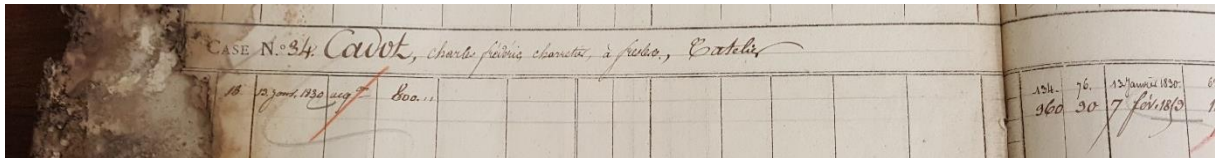 CASE N.º 34. Cadot, charles frédéric, à fresles,
18 13 janv. 1830 acq.on 800...
134. 76. 13 Janvier 1830.
960 90 7 fév. 18